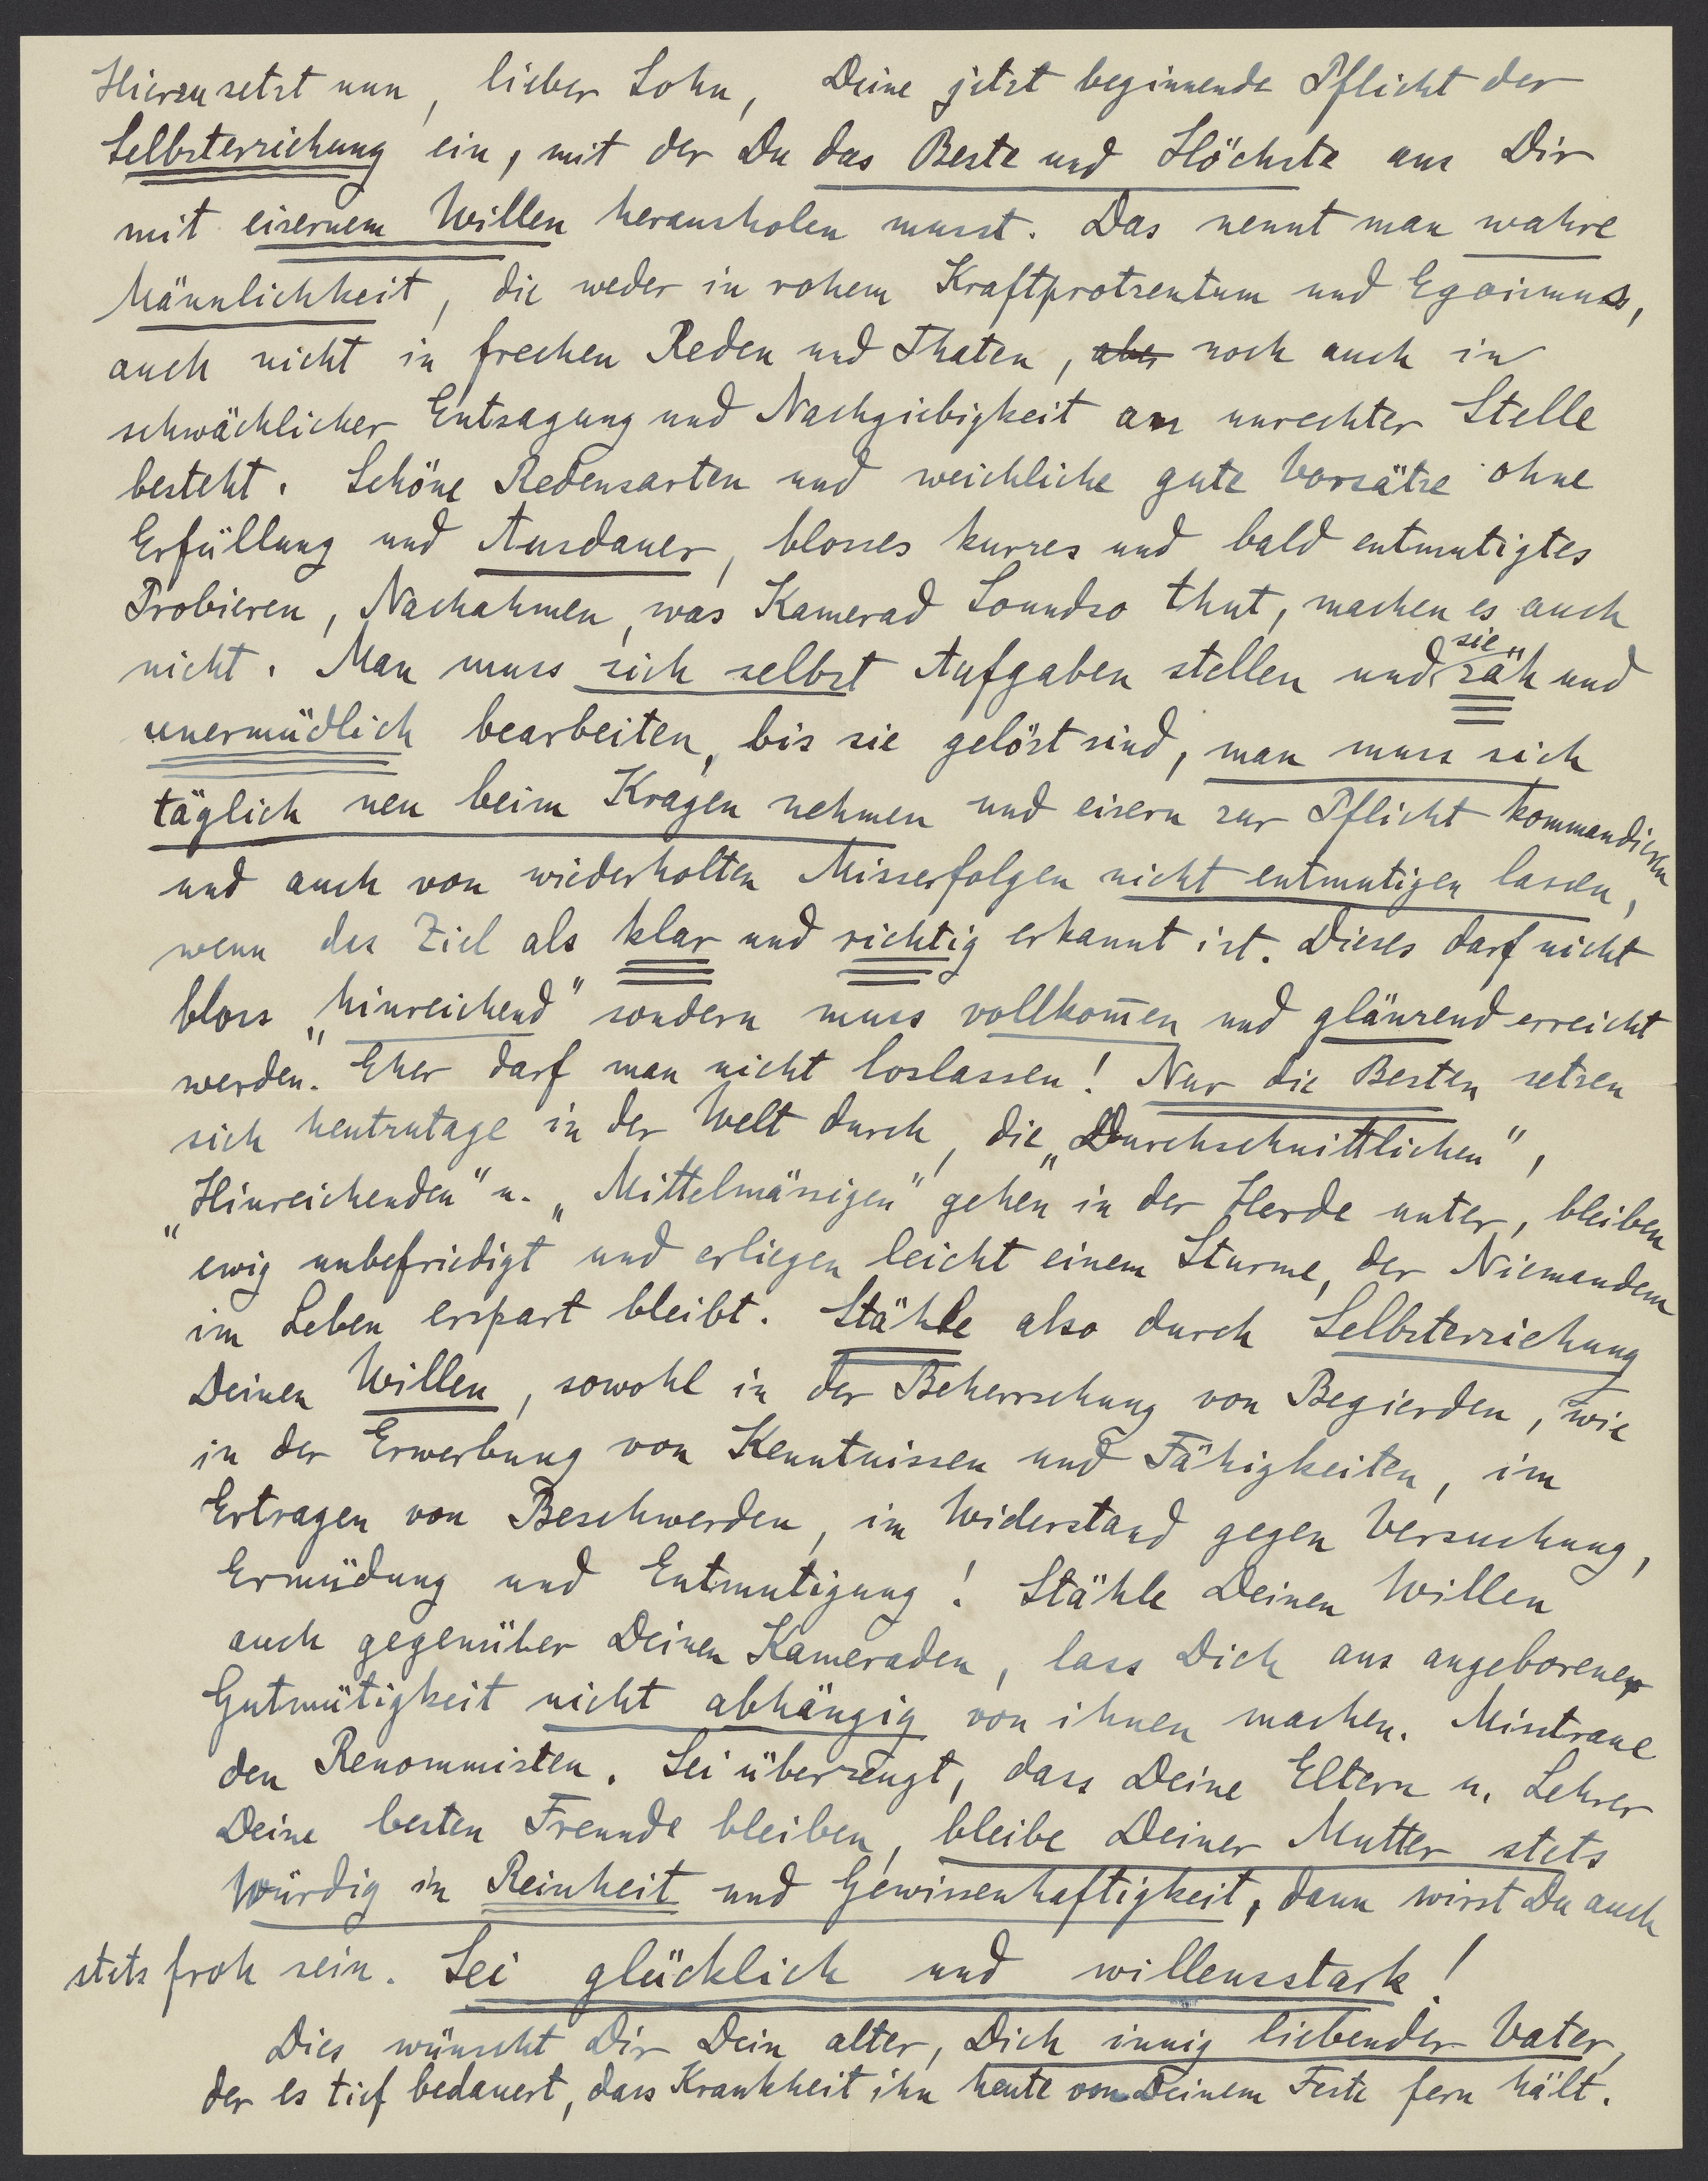 Hierzu setzt nun, lieber Sohn, Deine jetzt beginnende Pflicht der
Selbsterziehung ein, mit der Du das Beste und Höchste aus Dir
mit eisernem Willen herausholen musst. Das nennt man wahre
Männlichkeit, die weder in rohem Kraftprotzentum und Egoismus,
auch nicht in frechen Reden und Thaten, aber noch auch in
schwächlicher Entsagung und Nachgiebigkeit an unrechter Stelle
besteht. Schöne Redensarten und weichliche gute Vorsätze ohne
Erfüllung und Ausdauer, blosses kurzes und bald entmutigtes
Probieren, Nachahmen, was Kamerad Soundso thut, machen es auch
nicht. Man muss sich selbst Aufgaben stellen und sie zäh und
unermüdlich bearbeiten, bis sie gelöst sind, man muss sich
täglich neu beim Kragen nehmen und eisern zur Pflicht kommandieren
und auch von wiederholten Misserfolgen nicht entmutigen lassen,
wenn das Ziel als klar und richtig erkannt ist. Dieses darf nicht
bloss „hinreichend" sondern muss vollkom̄en und glänzend erreicht
werden. Eher darf man nicht loslassen! Nur die Besten setzen
sich heutzutage in der Welt durch, die „Durchschnittlichen",
„Hinreichenden" u. „Mittelmässigen" gehen in der Herde unter, bleiben
ewig unbefriedigt und erliegen leicht einem Sturme, der Niemandem
im Leben erspart bleibt. Stähle also durch Selbsterziehung
Deinen Willen, sowohl in der Beherrschung von Begierden, wie
in der Erwerbung von Kenntnissen und Fähigkeiten, im
Ertragen von Beschwerden, im Widerstand gegen Versuchung,
Ermüdung und Entmutigung! Stähle Deinen Willen
auch gegenüber Deinen Kameraden, lass Dich aus angeborener
Gutmütigkeit nicht abhängig von ihnen machen. Misstraue
den Renommisten. Sei überzeugt, dass Deine Eltern u. Lehrer
Deine besten Freunde bleiben, bleibe Deiner Mutter stets
würdig in Reinheit und Gewissenhaftigkeit, dann wirst Du auch
stets froh sein. Sei glücklich und willensstark!
Dies wünscht Dir Dein alter, Dich innig liebender Vater,
der es tief bedauert, dass Krankheit ihn heute von Deinem Feste fern hält.